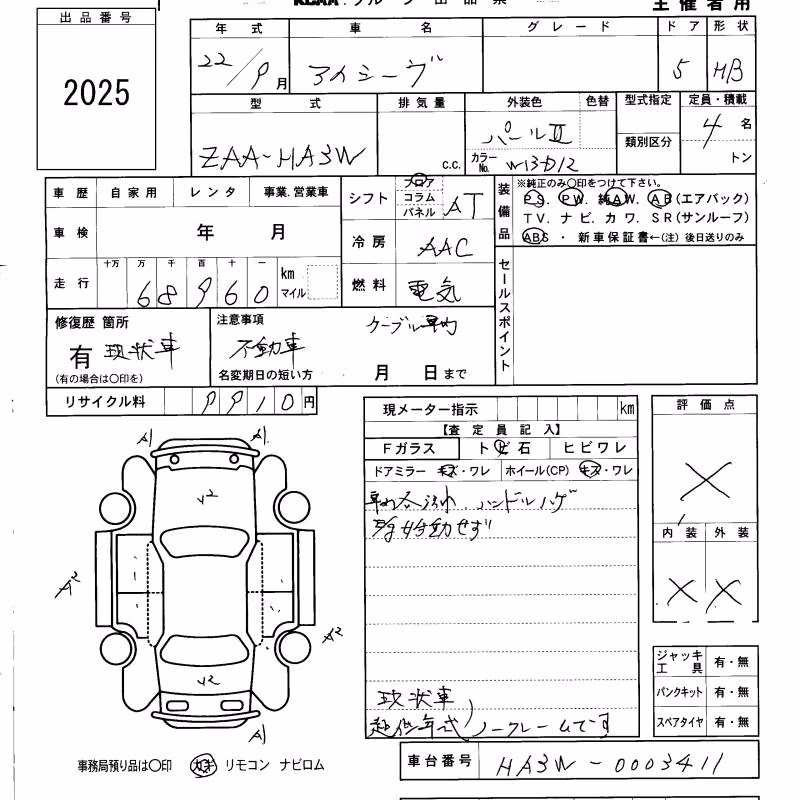 出品番号
2025
主催者用
年式 車名 グレード ドア 形状
22/9月 アイミーブ 5 HB
型式 排気量 外装色 色替 型式指定 定員・積載
ZAA-HA3W c.c. パールⅡ 類別区分 4名
カラーNo. W13-D12 トン
車歴 自家用 レンタ 事業.営業車
車検 年 月
走行 十万 万 千 百 十 一 km マイル
68960
シフト フロア コラム パネル AT
冷房 AAC
燃料 電気
装備品
※純正のみ〇印をつけて下さい。
P.S. P.W. 純A.W. A.B(エアバック)
T V. ナビ. カワ. S R(サンルーフ)
ABS ・ 新車保証書←(注) 後日送りのみ
セールスポイント
修復歴 箇所
有 現状車
(有の場合は〇印を)
注意事項
ケーブル車内
不動車
名変期日の短い方 月 日まで
リサイクル料 9910円
現メーター指示 km
【査定員記入】
Fガラス トビ石 ヒビワレ
ドアミラー キズ・ワレ ホイール(CP) キズ・ワレ
車内 ハンドルハゲ
始動せず
現状車
超低年式 ノークレームです
評価点
×
内装 外装
× ×
A1 A1
V2
A2
A2
V2
A1
ジャッキ工具 有・無
パンクキット 有・無
スペアタイヤ 有・無
事務局預り品は〇印 カギ リモコン ナビロム
車台番号 HA3W-0003411